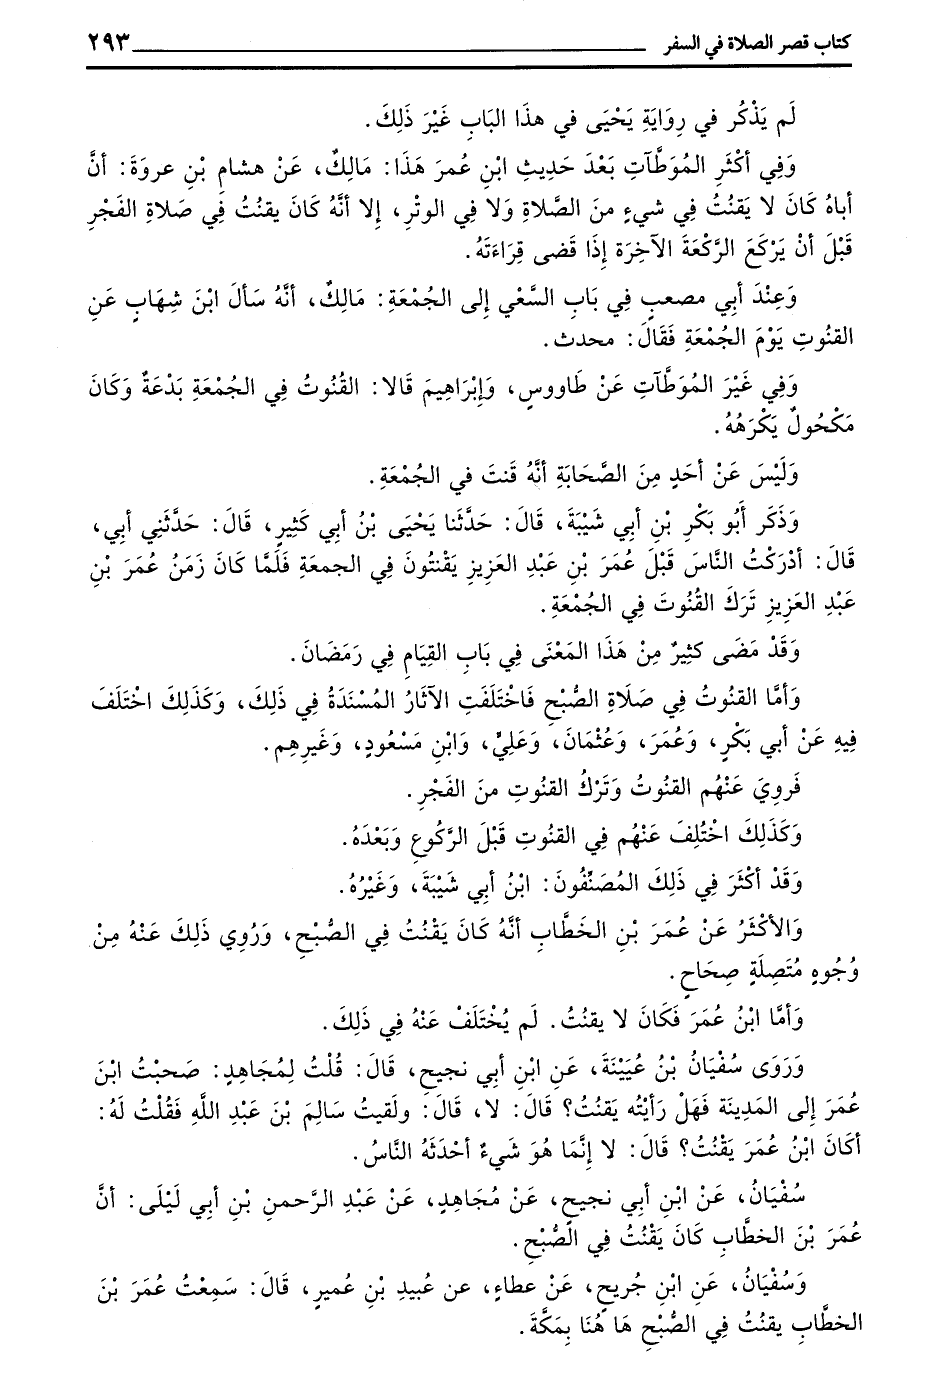 كتاب قصر الصلاة في السفر ٢٩٣
لَم يَذْكُر في رِوَايَةِ يَحْيَى في هذَا البَابِ غَيْرَ ذَلِكَ.
وَفِي أكْثَرِ المُوَطَّآتِ بَعْدَ حَدِيثِ ابْنِ عُمرَ هَذَا: مَالِكٌ، عَنْ هشامِ بْنِ عروَةَ: أنَّ
أباهُ كَانَ لا يَقنُتُ فِي شيءٍ منَ الصَّلاةِ وَلا فِي الوتْرِ، إِلا أنَّهُ كَانَ يقنُتُ فِي صَلاةِ الفَجْرِ
قَبْلَ أنْ يَرْكَعَ الرَّكْعَةَ الآخِرَة إذَا قَضى قِرَاءَتَهُ.
وَعِنْدَ أبِي مصعبٍ فِي بَابِ السَّعْيِ إِلى الجُمْعَةِ: مَالِكٌ، أنَّهُ سَألَ ابْنَ شِهَابٍ عَنِ
القنُوتِ يَوْمَ الجُمْعَةِ فَقَالَ: محدث.
وَفِي غَيْرَ المُوَطَّآتِ عَنْ طَاووسٍ، وَإِبْرَاهِيمَ قَالا: القُنُوتُ فِي الجُمْعَةِ بَدْعَةٌ وَكَانَ
مَكْحُولٌ يَكْرَهُهُ.
وَلَيْسَ عَنْ أحَدٍ مِنَ الصَّحَابَةِ أنَّهُ قَنتَ في الجُمْعَةِ.
وَذَكَر أَبُو بَكْرِ بْنِ أبِي شَيْبَةَ، قَالَ: حَدَّثَنا يَحْيَى بْنُ أبي كَثِيرٍ، قَالَ: حَدَّثَنِي أبِي،
قَالَ: أدْرَكْتُ النَّاسَ قَبْلَ عُمَرَ بْنِ عَبْدِ العَزِيزِ يَقْنتُونَ فِي الجمعَةِ فَلَمَّا كَانَ زَمَنُ عُمَرَ بْنِ
عَبْدِ العَزِيزِ تَرَكَ القُنُوتَ فِي الجُمْعَةِ.
وَقَدْ مَضَى كَثِيرٌ مِنْ هَذَا المَعْنَى فِي بَابِ القِيَامِ فِي رَمَضَانَ.
وَأمَّا القنُوتُ فِي صَلَاةِ الصُّبْحِ فَاخْتَلَفَتِ الآثَارُ المُسْنَدَةُ فِي ذَلِكَ، وَكَذَلِكَ اختَلَفَ
فِيهِ عَنْ أبي بَكْرٍ، وَعُمَرَ، وَعُثْمَانَ، وَعَلِيٍّ، وَابْنِ مَسْعُودٍ، وَغَيرِهِم.
فَروِيَ عَنْهُم القنُوتُ وَتَرْكُ القنُوتِ منَ الفَجْرِ.
وَكَذَلِكَ اخْتُلِفَ عَنْهُم فِي القنُوتِ قَبْلَ الرَّكُوعِ وَبَعْدَهُ.
وَقَدْ أكْثَرَ فِي ذَلِكَ المُصَنّفُونَ: ابْنُ أبِي شَيْبَةَ، وَغَيْرُهُ.
وَالأكْثَرُ عَنْ عُمَرَ بْنِ الخَطَّابِ أنَّهُ كَانَ يَقْنُتُ فِي الصُّبْحِ، وَرُوِي ذَلِكَ عَنْهُ مِنْ
وُجُوهٍ مُتَصِلَةٍ صِحَاحٍ.
وَأمَّا ابْنُ عُمَرَ فَكَانَ لا يقنُتُ. لَم يُخْتَلَفْ عَنْهُ فِي ذَلِكَ.
وَرَوَى سُفْيَانُ بْنُ عُيَيْنَةَ، عَنِ ابْنِ أبي نجيحٍ، قَالَ: قُلْتُ لِمُجَاهِدٍ: صَحبْتُ ابْنَ
عُمَرَ إلى المَدِينَة فَهَلْ رَأيْتُه يَقنُتُ؟ قَالَ: لا، قَالَ: ولَقيتُ سَالِمَ بْنَ عَبْدِ اللَّهِ فَقُلْتُ لَهُ:
أكَانَ ابْنُ عُمَرَ يَقْنُتُ؟ قَالَ: لا إنَّمَا هُوَ شَيءٌ أحْدَثَهُ النَّاسُ.
سُفْيَانُ، عَنْ ابْنِ أبِي نجيحٍ، عَنْ مُجَاهِدٍ، عَنْ عَبْدِ الرَّحمنِ بْنِ أبِي لَيْلَى: أنَّ
عُمَرَ بْنَ الخطَّابِ كَانَ يَقْنُتُ فِي الصُّبْحِ.
وَسُفْيَانُ، عَنِ ابْنِ جُريحٍ، عَنْ عطاءٍ، عن عُبيدِ بْنِ عُميرٍ، قَالَ: سَمِعْتُ عُمَرَ بْنَ
الخطَّابِ يقنُتُ فِي الصُّبْحِ هَا هُنَا بِمَكَّةَ.